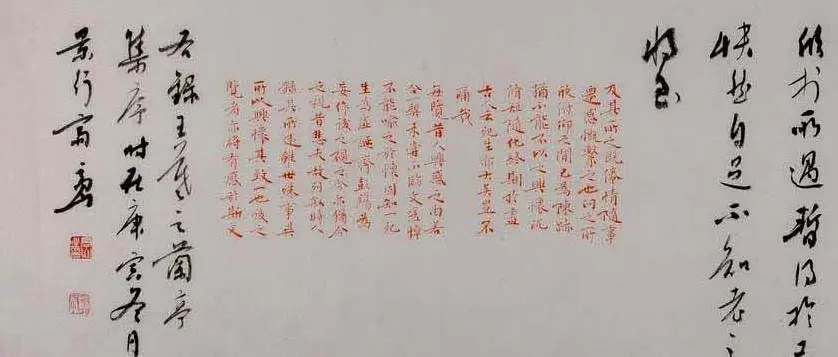 欣於所遇暫得於己
快然自足不知老之
將至
及其所之既倦情隨事
遷感慨繫之矣向之所
欣俯仰之間已為陳跡
猶不能不以之興懷況
脩短隨化終期於盡
古人云死生亦大矣豈不
痛哉
每覽昔人興感之由若
合一契未嘗不臨文嗟悼
不能喻之於懷固知一死
生為虛誕齊彭殤為
妄作後之視今亦猶今
之視昔悲夫故列敘時人
錄其所述雖世殊事異
所以興懷其致一也後之
覽者亦將有感於斯文
右錄王羲之蘭亭
集序時在庚寅冬月
景行